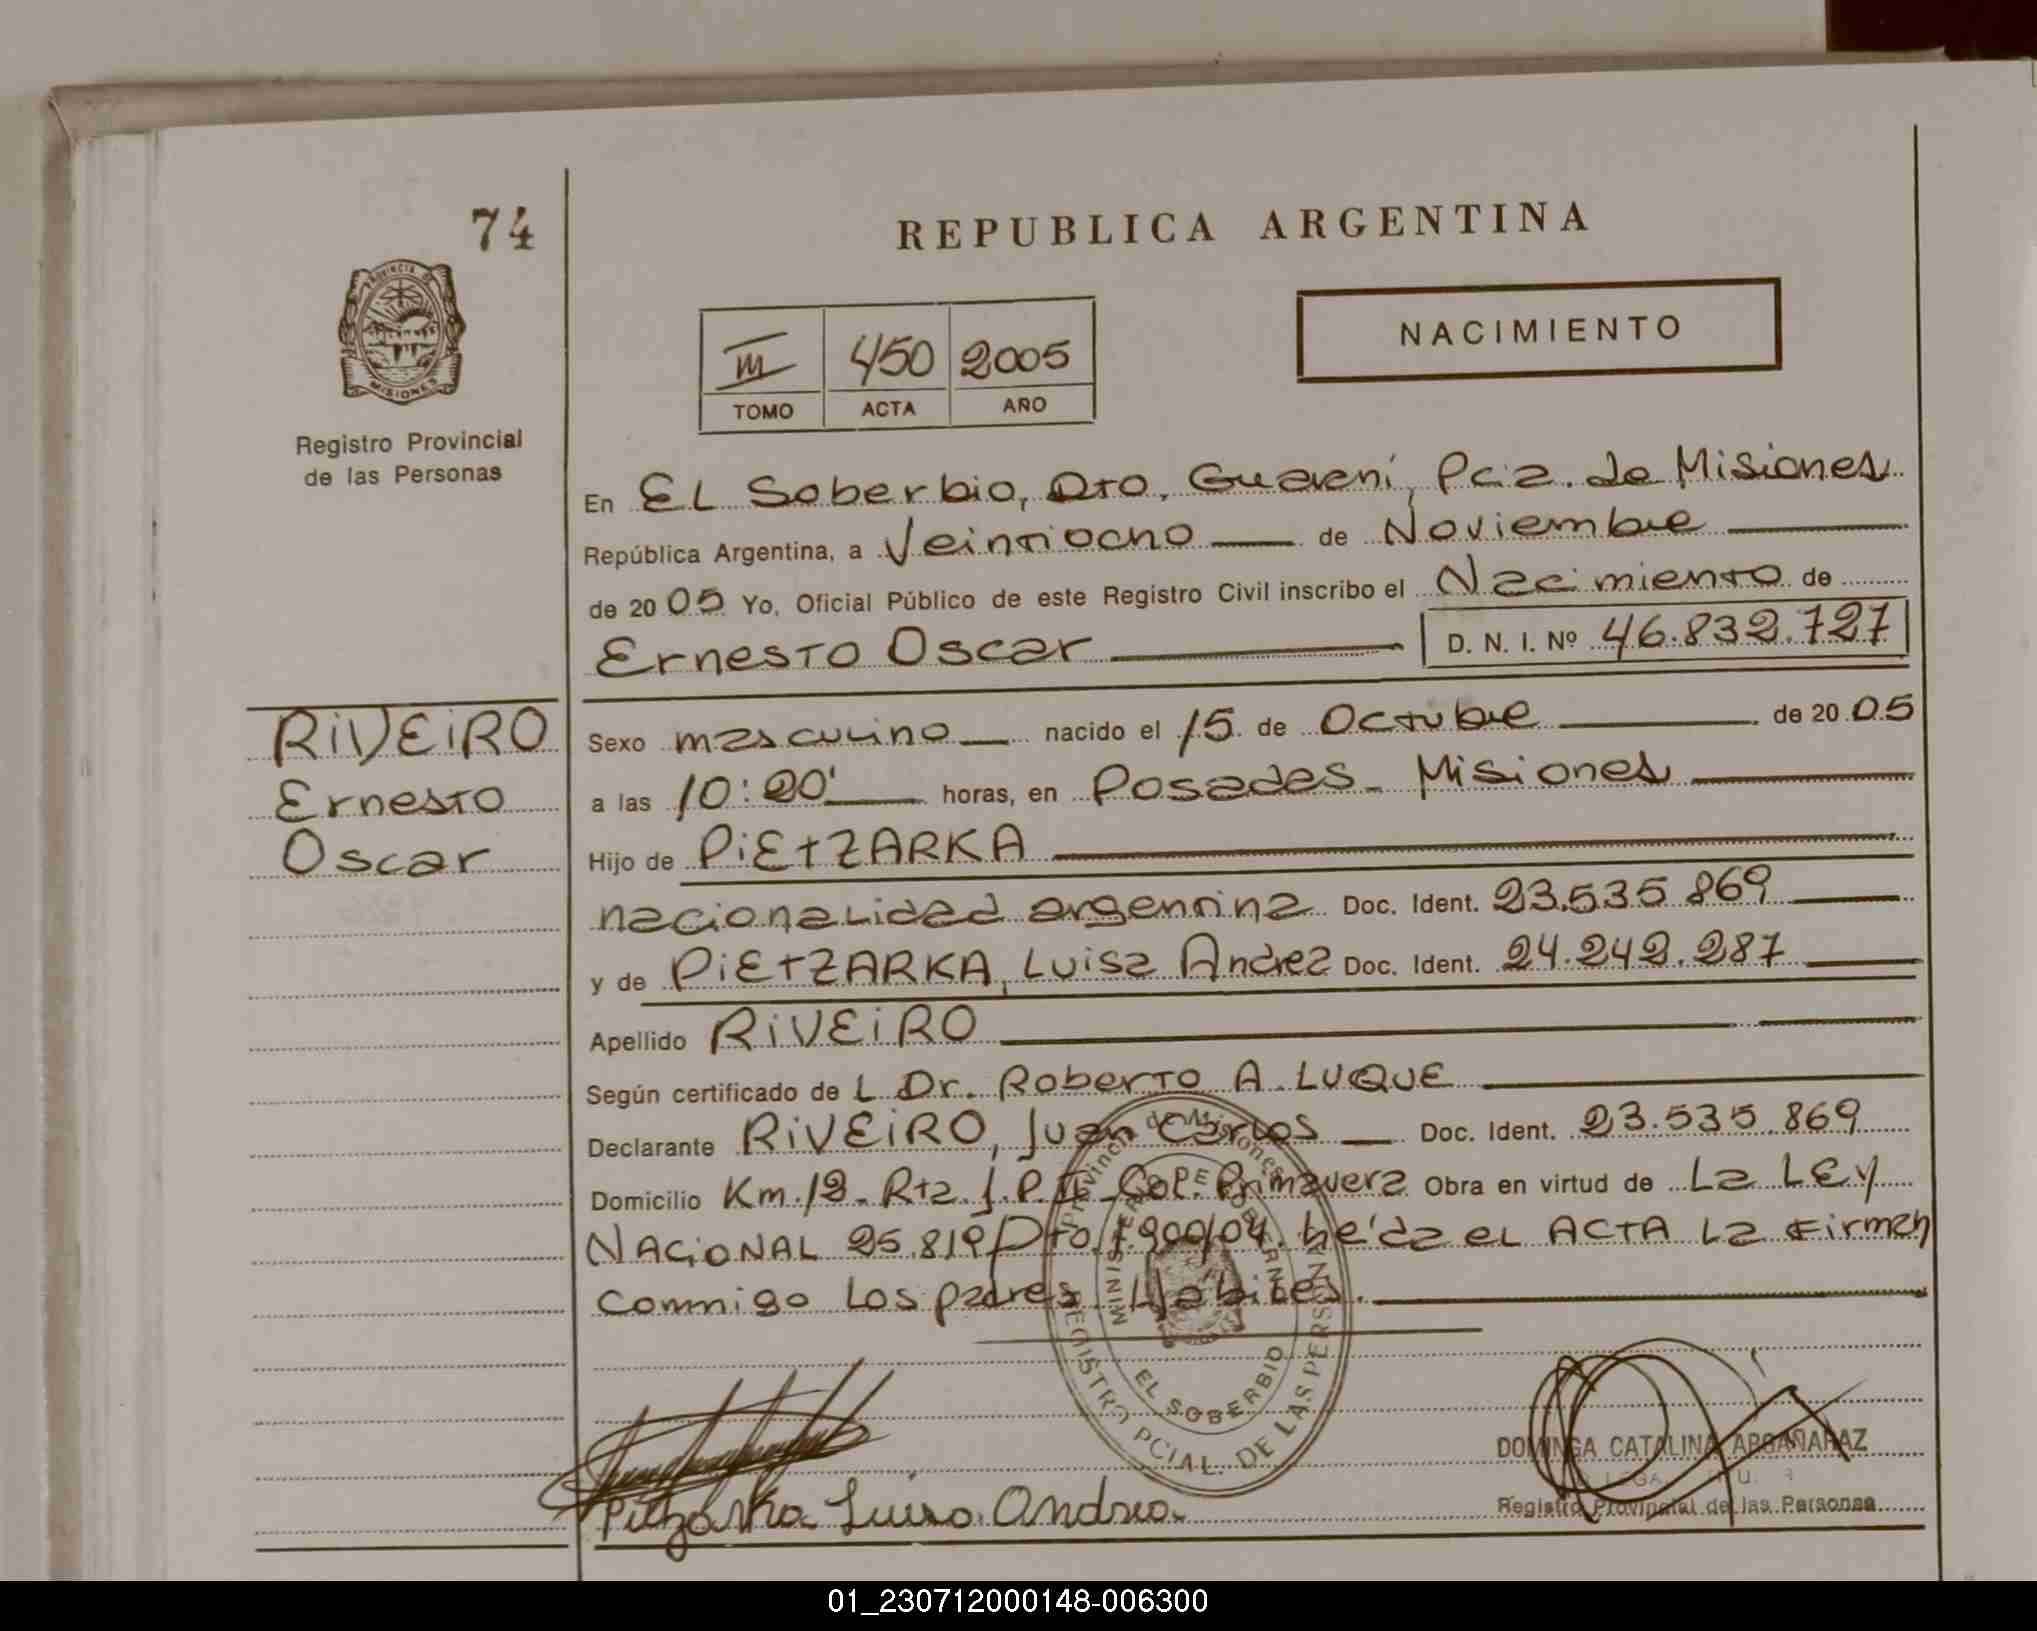 74
REPUBLICA ARGENTINA
PROVINCIA DE
MISIONES
Registro Provincial
de las Personas
III 450 2005
TOMO ACTA AÑO
NACIMIENTO
En EL Soberbio, Dto. Guarani, Pcia. de Misiones
República Argentina, a Veintiocho de Noviembre
de 2005 Yo, Oficial Público de este Registro Civil inscribo el Nacimiento de
Ernesto Oscar D. N. I. Nº 46.832.727
RIVEIRO
Ernesto
Oscar
Sexo masculino nacido el 15 de Octubre de 2005
a las 10:20' horas, en Posadas - Misiones
Hijo de PIETZARKA
nacionalidad argentina Doc. Ident. 23.535.869
y de PIETZARKA, Luisa Andrea Doc. Ident. 24.242.287
Apellido RIVEIRO
Según certificado de L Dr. Roberto A. LUQUE
Declarante RIVEIRO, Juan Carlos Doc. Ident. 23.535.869
Domicilio Km. 12 - Rta. J. P. II - Col. Primavera Obra en virtud de La LEy
NACIONAL 25.819 Dto. 1.900/04. leída el ACTA La Firman
conmigo Los padres
Provincia de Misiones
MINISTERIO DE GOBIERNO
EL SOBERBIO
REGISTRO PCIAL. DE LAS PERSONAS
Pietzarka Luisa Andrea
DOMINGA CATALINA ARGAÑARAZ
Registro Provincial de las Personas
01_230712000148-006300